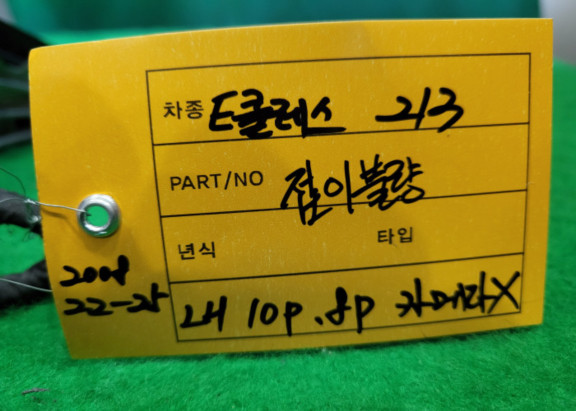 차종 E클래스 213
PART/NO 접이불량
년식 타입
내 10P.8P 카메라X
2008
22-2나